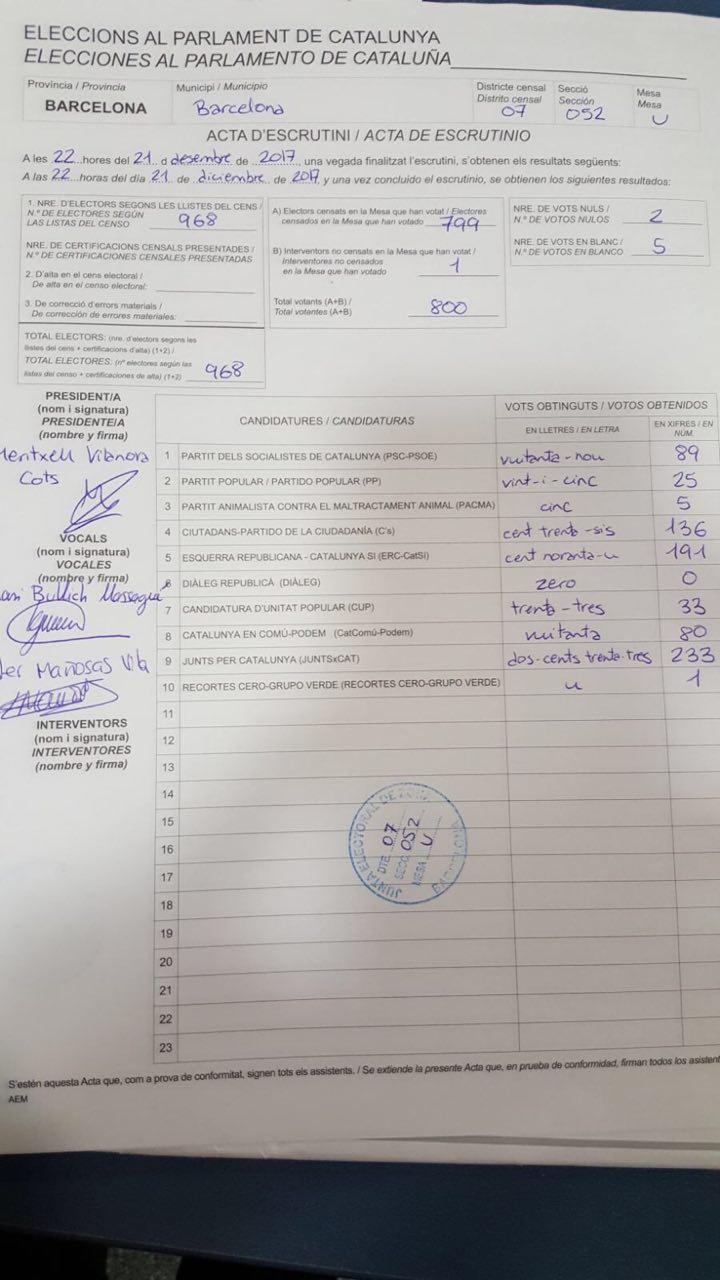 ELECCIONS AL PARLAMENT DE CATALUNYA
ELECCIONES AL PARLAMENTO DE CATALUÑA
Provincia / Provincia
BARCELONA
Municipi / Municipio
Barcelona
Districte censal
Distrito censal
07
Secció
Sección
052
Mesa
Mesa
U
ACTA D'ESCRUTINI / ACTA DE ESCRUTINIO
A les 22 hores del 21 d desembre de 2017, una vegada finalitzat l'escrutini, s'obtenen els resultats següents:
A las 22 horas del día 21 de diciembre de 2017, y una vez concluido el escrutinio, se obtienen los siguientes resultados:
1. NRE. D'ELECTORS SEGONS LES LLISTES DEL CENS /
N.º DE ELECTORES SEGÚN
LAS LISTAS DEL CENSO
968
NRE. DE CERTIFICACIONS CENSALS PRESENTADES /
N.º DE CERTIFICACIONES CENSALES PRESENTADAS
2. D'alta en el cens electoral /
De alta en el censo electoral:
3. De correcció d'errors materials /
De corrección de errores materiales:
TOTAL ELECTORS: (nre. d'electors segons les
llistes del cens + certificacions d'alta) (1+2) /
TOTAL ELECTORES: (nº electores según las
listas del censo + certificaciones de alta) (1+2)
968
A) Electors censats en la Mesa que han votat / Electores
censados en la Mesa que han votado
799
B) Interventors no censats en la Mesa que han votat /
Interventores no censados
en la Mesa que han votado
1
Total votants (A+B) /
Total votantes (A+B)
800
NRE. DE VOTS NULS /
N.º DE VOTOS NULOS
2
NRE. DE VOTS EN BLANC /
N.º DE VOTOS EN BLANCO
5
PRESIDENT/A
(nom i signatura)
PRESIDENTE/A
(nombre y firma)
Vilanova
Cots
VOCALS
(nom i signatura)
VOCALES
(nombre y firma)
Bullich
Mañosas Vila
INTERVENTORS
(nom i signatura)
INTERVENTORES
(nombre y firma)
CANDIDATURES / CANDIDATURAS
VOTS OBTINGUTS / VOTOS OBTENIDOS
EN LLETRES / EN LETRA
EN XIFRES / EN NÚM.
1 PARTIT DELS SOCIALISTES DE CATALUNYA (PSC-PSOE) vuitanta-nou 89
2 PARTIT POPULAR / PARTIDO POPULAR (PP) vint-i-cinc 25
3 PARTIT ANIMALISTA CONTRA EL MALTRACTAMENT ANIMAL (PACMA) cinc 5
4 CIUTADANS-PARTIDO DE LA CIUDADANÍA (C's) cent trenta-sis 136
5 ESQUERRA REPUBLICANA - CATALUNYA SI (ERC-CatSí) cent noranta-u 191
6 DIÀLEG REPUBLICÀ (DIÀLEG) zero 0
7 CANDIDATURA D'UNITAT POPULAR (CUP) trenta-tres 33
8 CATALUNYA EN COMÚ-PODEM (CatComú-Podem) vuitanta 80
9 JUNTS PER CATALUNYA (JUNTSxCAT) dos-cents trenta-tres 233
10 RECORTES CERO-GRUPO VERDE (RECORTES CERO-GRUPO VERDE) u 1
11
12
13
14
15
16
17
18
19
20
21
22
23
JUNTA ELECTORAL DE ZONA
DTE. 07
SECC. 052
MESA U
S'estén aquesta Acta que, com a prova de conformitat, signen tots els assistents. / Se extiende la presente Acta que, en prueba de conformidad, firman todos los asistent
AEM